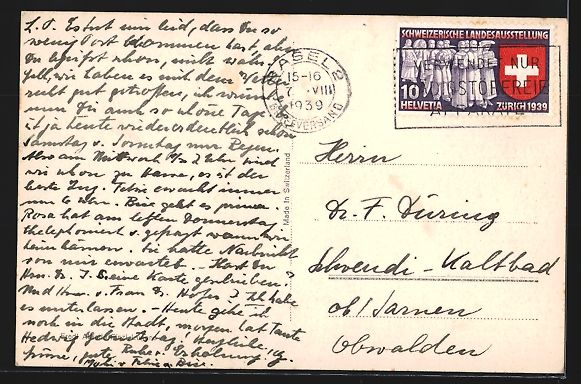 L. P. Es tut mir leid, dass Du so
wenig Post bekommen hast, aber
Du begreifst schon, nicht wahr.
Gell, wir haben es mit dem
recht gut getroffen, ich wünsche
nun Dir auch so schöne Tage
ist ja heute wieder ordentlich schön
Samstag u. Sonntag nur Regen.
Also am Mittwoch 1/2 2 Uhr sind
wir schon zu Hause, es ist der
beste Zug. erwacht immer
um 6 Uhr. geht es prima.
Rosa hat am letzten Donnerstag
telephoniert u. gefragt wann wir
heim kämen. Sie hatte Nachricht
von mir erwartet. – Hast Du
Hrn. Dr. J. eine Karte geschrieben.
Und Hrn. u. Frau Dr. Hofer? Ich habe
es unterlassen. – Heute gehe ich
noch in die Stadt, morgen hat Tante
Hedwig Geburtstag. Herzliche
Grüsse, gute Ruhe u. Erholung
Made in Switzerland
BASEL 2
15-16
7. VIII
1939
BRIEFVERSAND
SCHWEIZERISCHE LANDESAUSSTELLUNG
10 HELVETIA ZÜRICH 1939
VERWENDET NUR
STÖRFREIE
APPARATE
Herrn
Dr. F. Düring
Schwendi-Kaltbad
ob/Sarnen
Obwalden